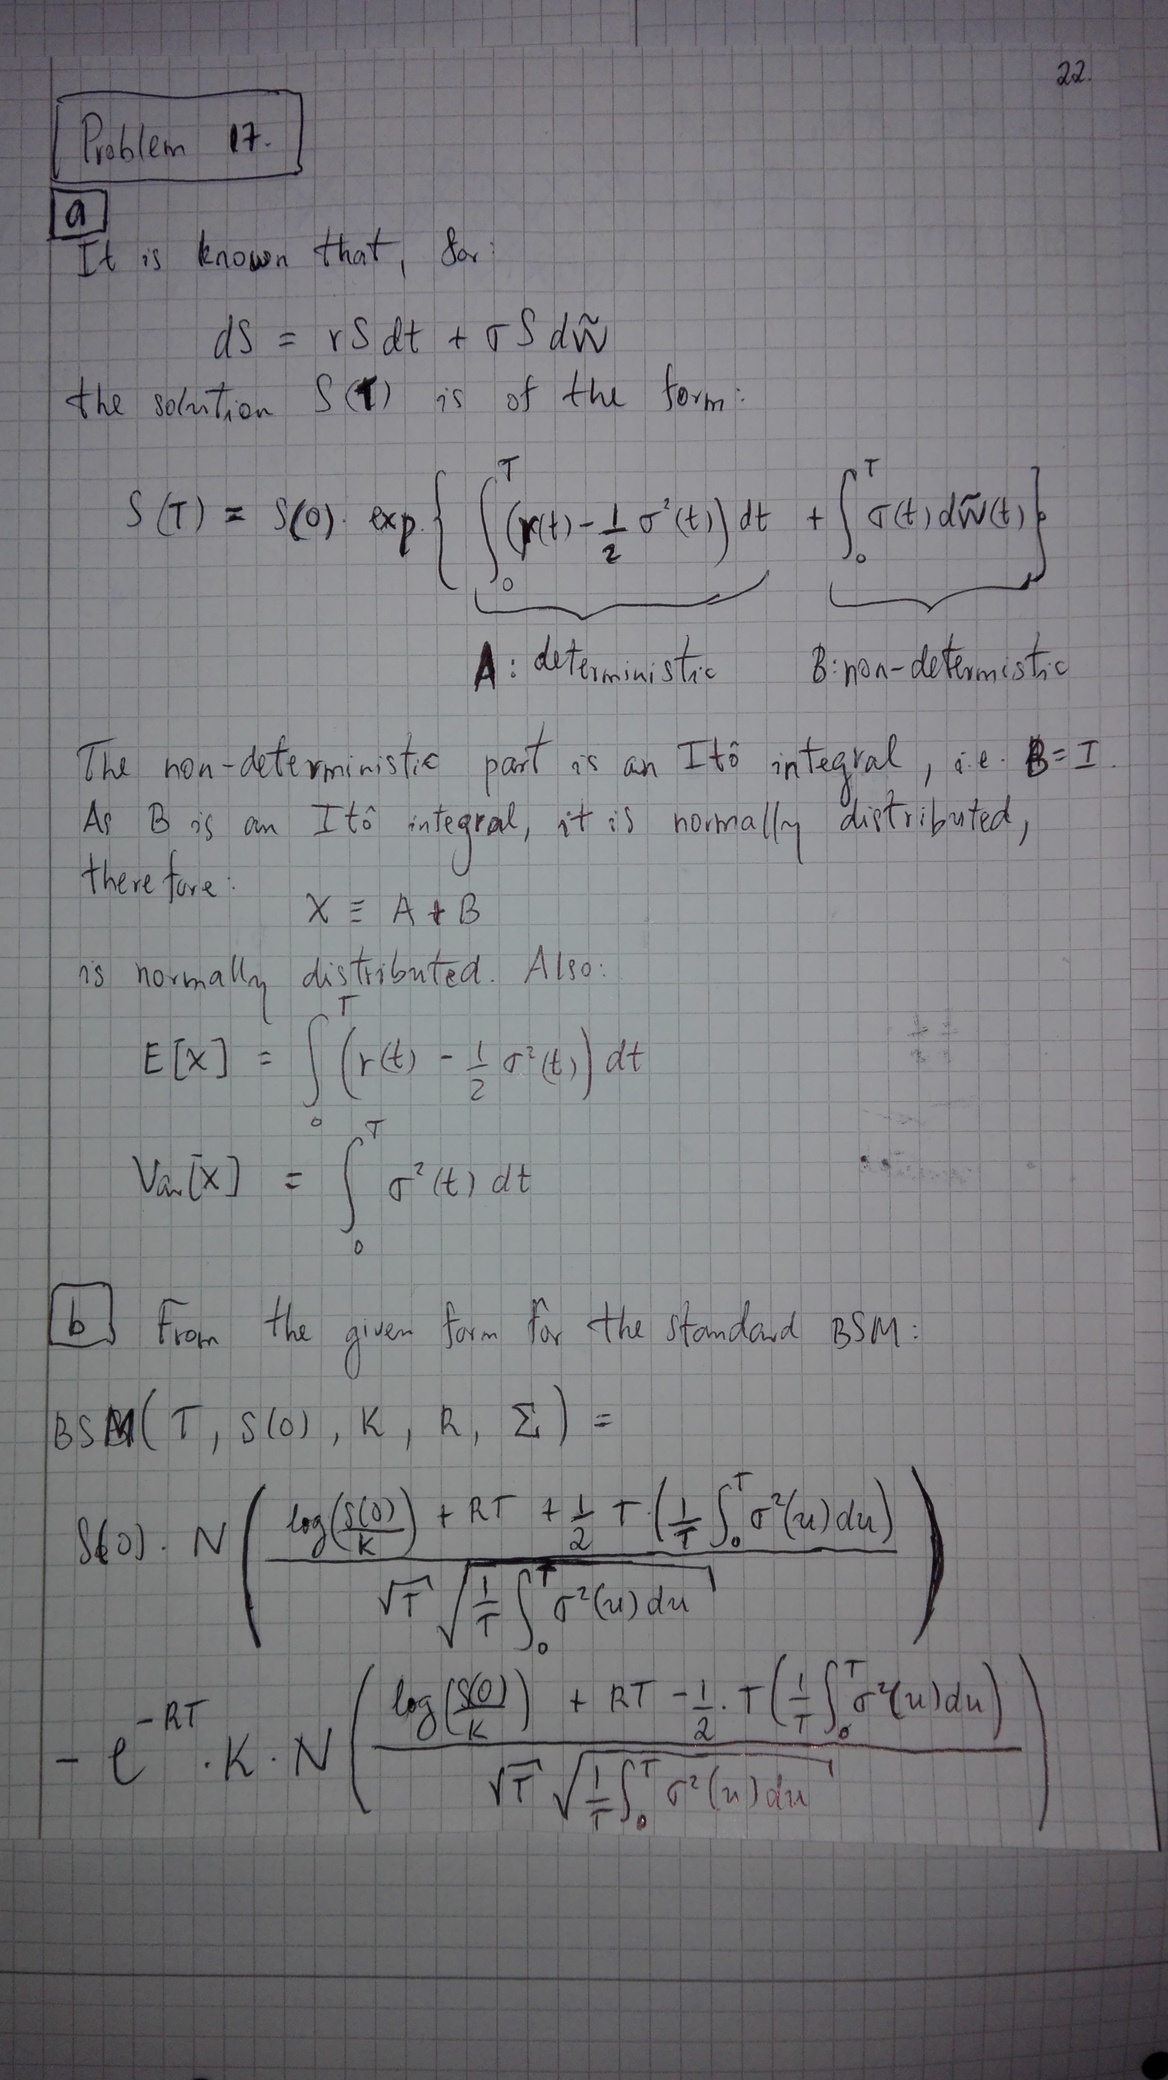 22.
Problem 17.
a
It is known that, for:
dS = rS dt + σ S dW̃
the solution S(T) is of the form:
S(T) = S(0) · exp { ∫₀ᵀ (r(t) - 1/2 σ²(t)) dt + ∫₀ᵀ σ(t) dW̃(t) }
A: deterministic B: non-determistic
The non-deterministic part is an Itô integral, i.e. B = I.
As B is an Itô integral, it is normally distributed,
therefore:
X ≡ A + B
is normally distributed. Also:
E[X] = ∫₀ᵀ (r(t) - 1/2 σ²(t)) dt
Var[X] = ∫₀ᵀ σ²(t) dt
b From the given form for the standard BSM:
BSM(T, S(0), K, R, Σ) =
S(0) · N ( (log(S(0)/K) + RT + 1/2 T (1/T ∫₀ᵀ σ²(u) du)) / (√T √(1/T ∫₀ᵀ σ²(u) du)) )
- e^(-RT) · K · N ( (log(S(0)/K) + RT - 1/2 · T (1/T ∫₀ᵀ σ²(u) du)) / (√T √(1/T ∫₀ᵀ σ²(u) du)) )